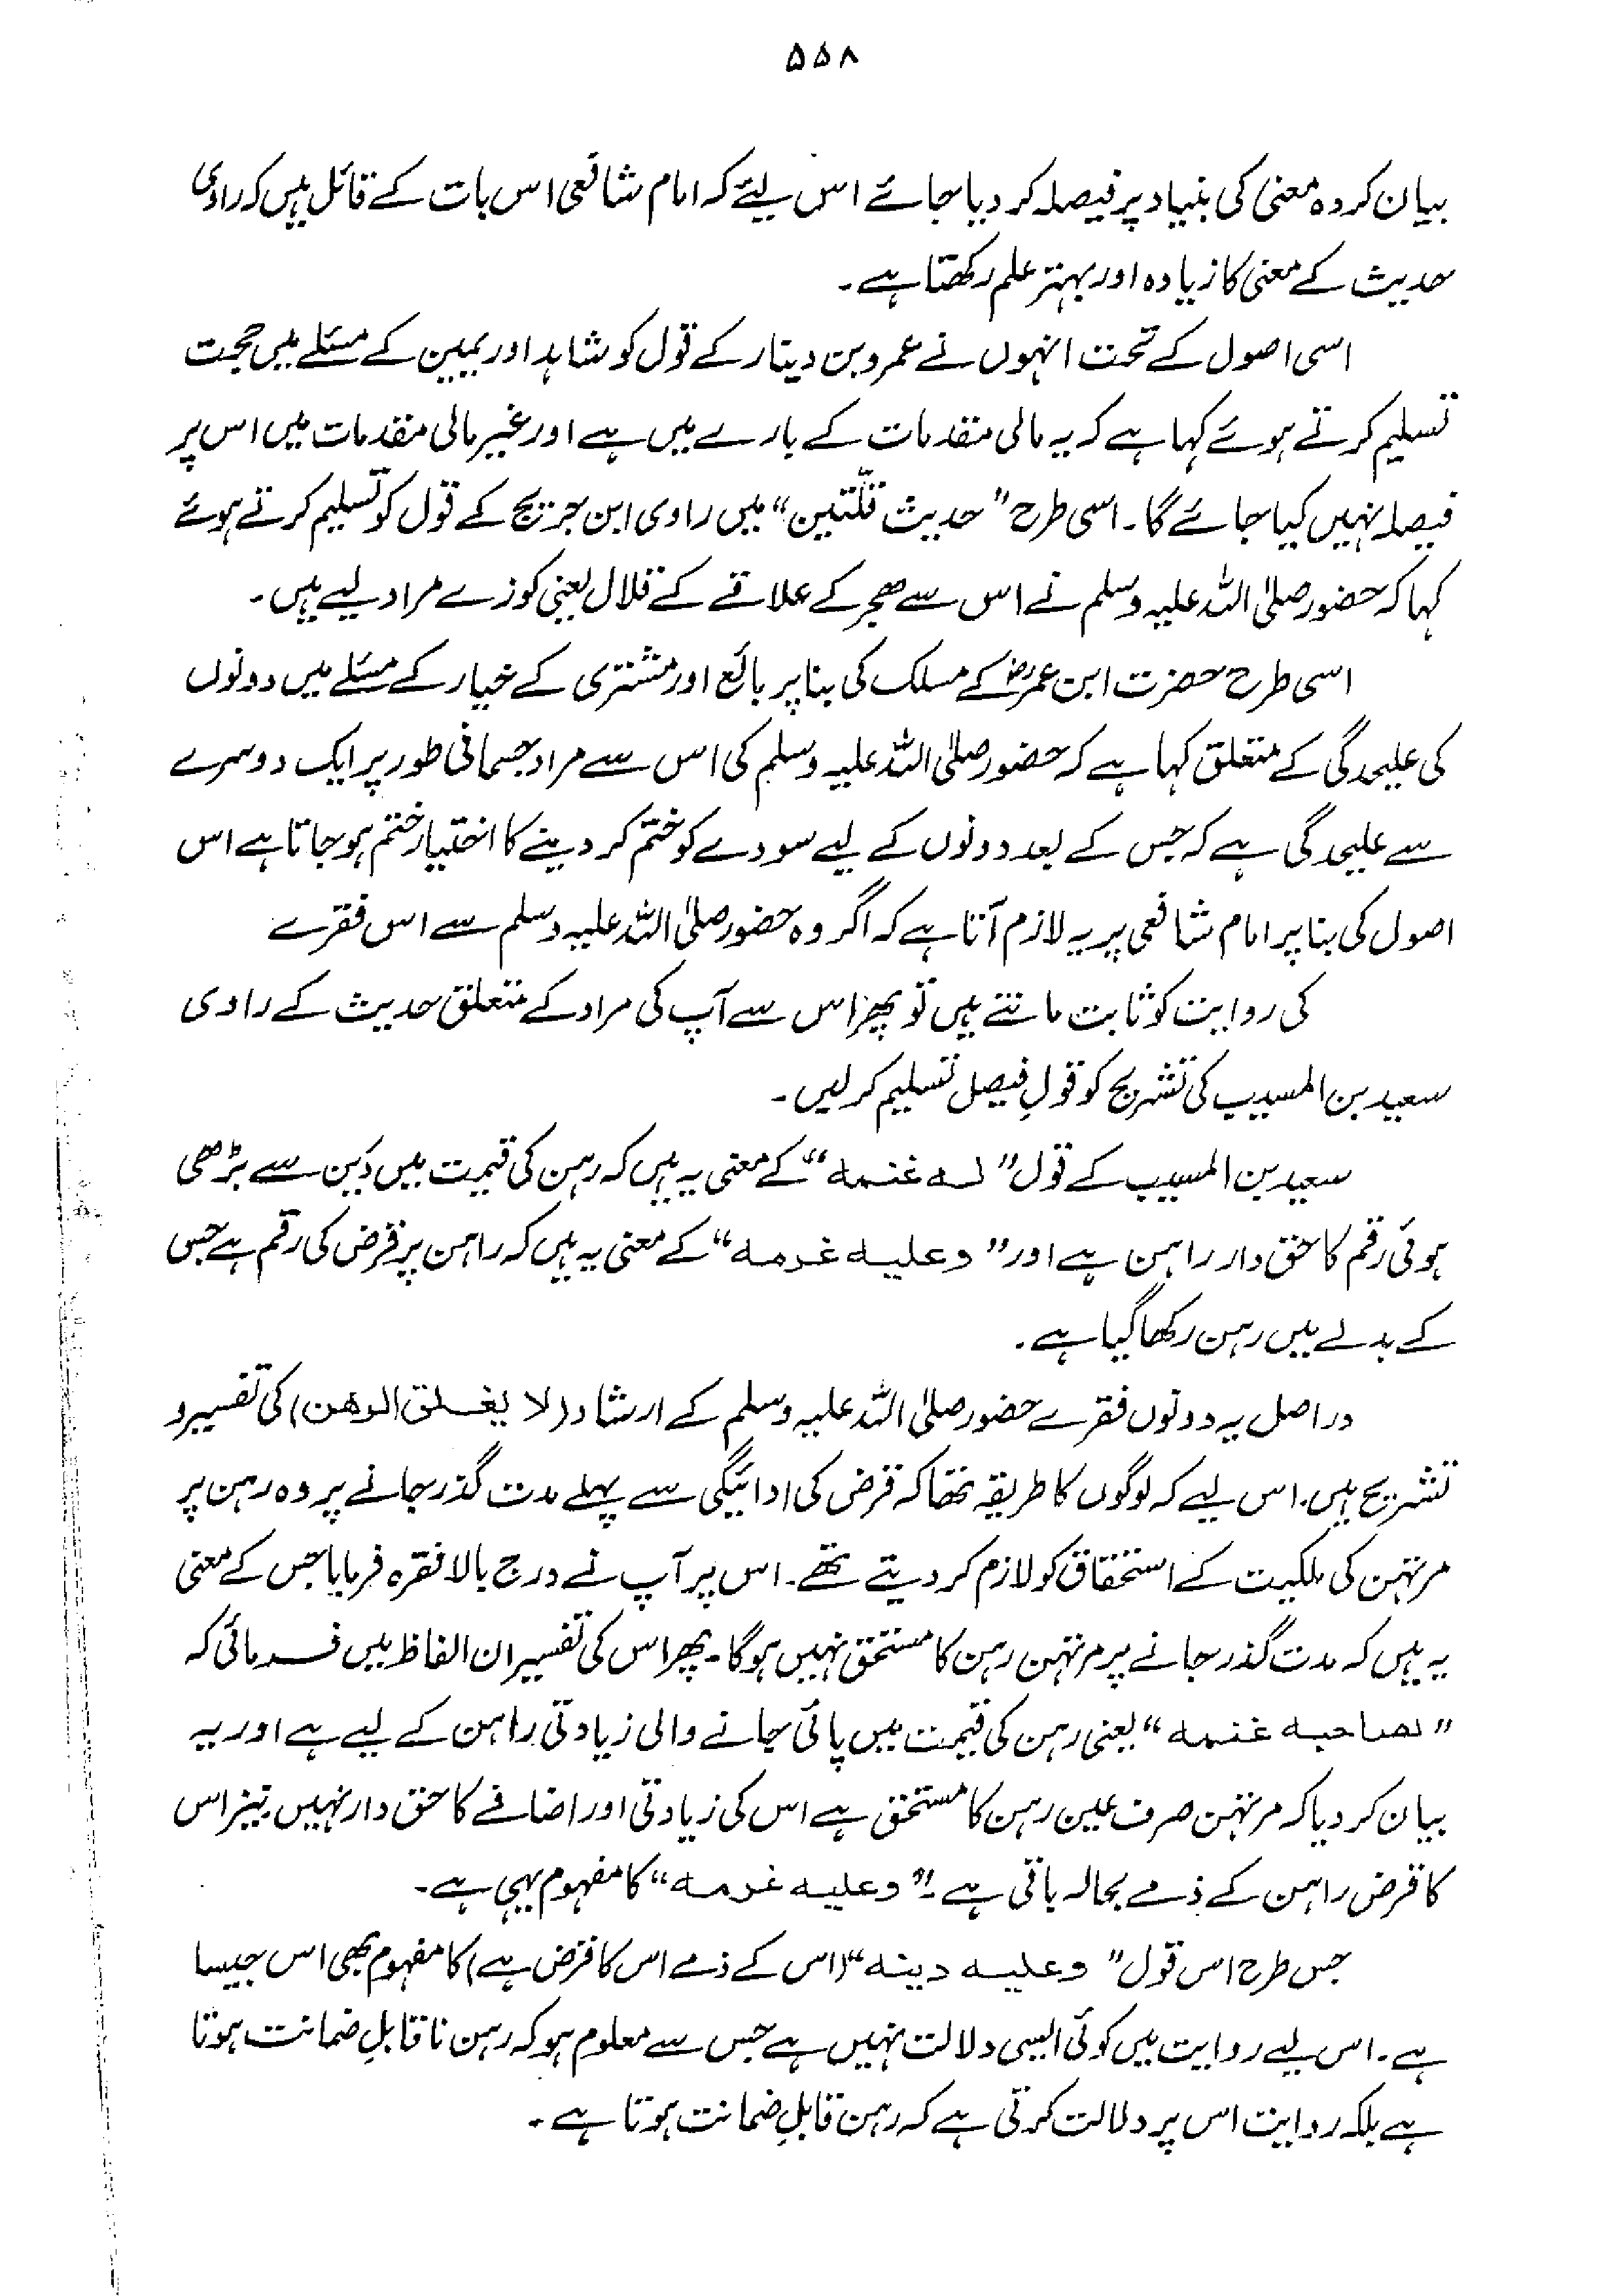 ۵۵۸
بیان کردہ معنیٰ کی بنیاد پر فیصلہ کر دیا جائے اس لیئے کہ امام شافعی اس بات کے قائل ہیں کہ راوی
حدیث کے معنیٰ کا زیادہ اور بہتر علم رکھتا ہے۔
اسی اصول کے تحت انہوں نے عمرو بن دینار کے قول کو شاہد اور یمین کے مسئلے میں حجت
تسلیم کرتے ہوئے کہا ہے کہ یہ مالی مقدمات کے بارے میں ہے اور غیر مالی مقدمات میں اس پر
فیصلہ نہیں کیا جائے گا۔ اسی طرح "حدیث قلّتین" میں راوی ابن جریج کے قول کو تسلیم کرتے ہوئے
کہا کہ حضور صلیٰ اللہ علیہ وسلم نے اس سے ھجر کے علاقے کے قلال یعنی کوزے مراد لیے ہیں۔
اسی طرح حضرت ابن عمرؓ کے مسلک کی بنا پر بائع اور مشتری کے خیار کے مسئلے میں دونوں
کی علیحدگی کے متعلق کہا ہے کہ حضور صلیٰ اللہ علیہ وسلم کی اس سے مراد جسمانی طور پر ایک دوسرے
سے علیحدگی ہے کہ جس کے بعد دونوں کے لیے سودے کو ختم کر دینے کا اختیار ختم ہو جاتا ہے اس
اصول کی بنا پر امام شافعی پر یہ لازم آتا ہے کہ اگر وہ حضور صلیٰ اللہ علیہ وسلم سے اس فقرے
کی روایت کو ثابت مانتے ہیں تو پھر اس سے آپ کی مراد کے متعلق حدیث کے راوی
سعید بن المسیب کی تشریح کو قولِ فیصل تسلیم کر لیں۔
سعید بن المسیب کے قول "لـہ غنمہ" کے معنی یہ ہیں کہ رہن کی قیمت میں دَین سے بڑھی
ہوئی رقم کا حق دار راہن ہے اور "وعلیہ غرمہ" کے معنی یہ ہیں کہ راہن پر قرض کی رقم ہے جس
کے بدلے میں رہن رکھا گیا ہے۔
دراصل یہ دونوں فقرے حضور صلیٰ اللہ علیہ وسلم کے ارشاد (لا یغـلق الرھن) کی تفسیر و
تشریح ہیں۔ اس لیے کہ لوگوں کا طریقہ تھا کہ قرض کی ادائیگی سے پہلے مدت گذر جانے پر وہ رہن پر
مرتہن کی ملکیت کے استحقاق کو لازم کر دیتے تھے۔ اس پر آپ نے درج بالا فقرہ فرمایا جس کے معنی
یہ ہیں کہ مدت گذر جانے پر مرتہن رہن کا مستحق نہیں ہوگا۔ پھر اس کی تفسیر ان الفاظ میں فـرمائی کہ
"لصاحبہ غنمہ" یعنی رہن کی قیمت میں پائی جانے والی زیادتی راہن کے لیے ہے اور یہ
بیان کر دیا کہ مرتہن صرف عین رہن کا مستحق ہے اس کی زیادتی اور اضافے کا حق دار نہیں۔ نیز اس
کا قرض راہن کے ذمے بحالہ باقی ہے۔ "وعلیہ غرمہ" کا مفہوم یہی ہے۔
جس طرح اس قول "وعلیہ دینہ" (اس کے ذمے اس کا قرض ہے) کا مفہوم بھی اس جیسا
ہے۔ اس لیے روایت میں کوئی ایسی دلالت نہیں ہے جس سے معلوم ہو کہ رہن ناقابلِ ضمانت ہوتا
ہے بلکہ روایت اس پر دلالت کرتی ہے کہ رہن قابلِ ضمانت ہوتا ہے۔